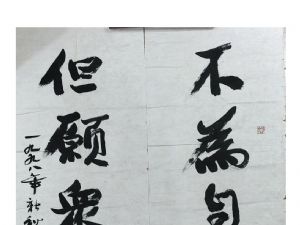 不為自
但願眾
一九九八年